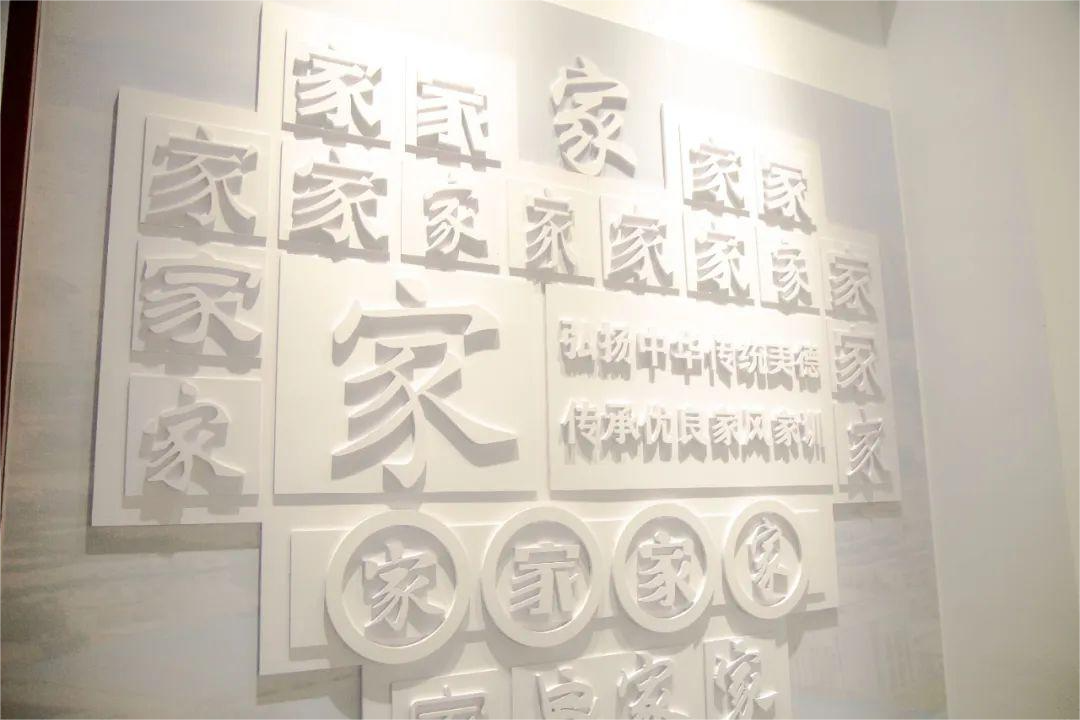 家 家 家 家 家
家 家 家 家 家 家 家 家
家 家
家 家 家
弘扬中华传统美德
传承优良家风家训
家 家 家 家
家 家